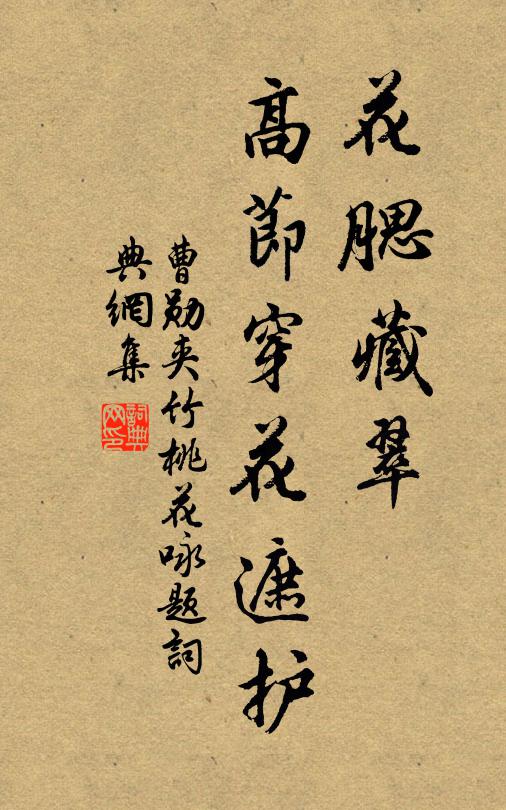 花腮藏翠
高節穿花遮护
曹勋夹竹桃花咏题詞
典網集
詞典网印